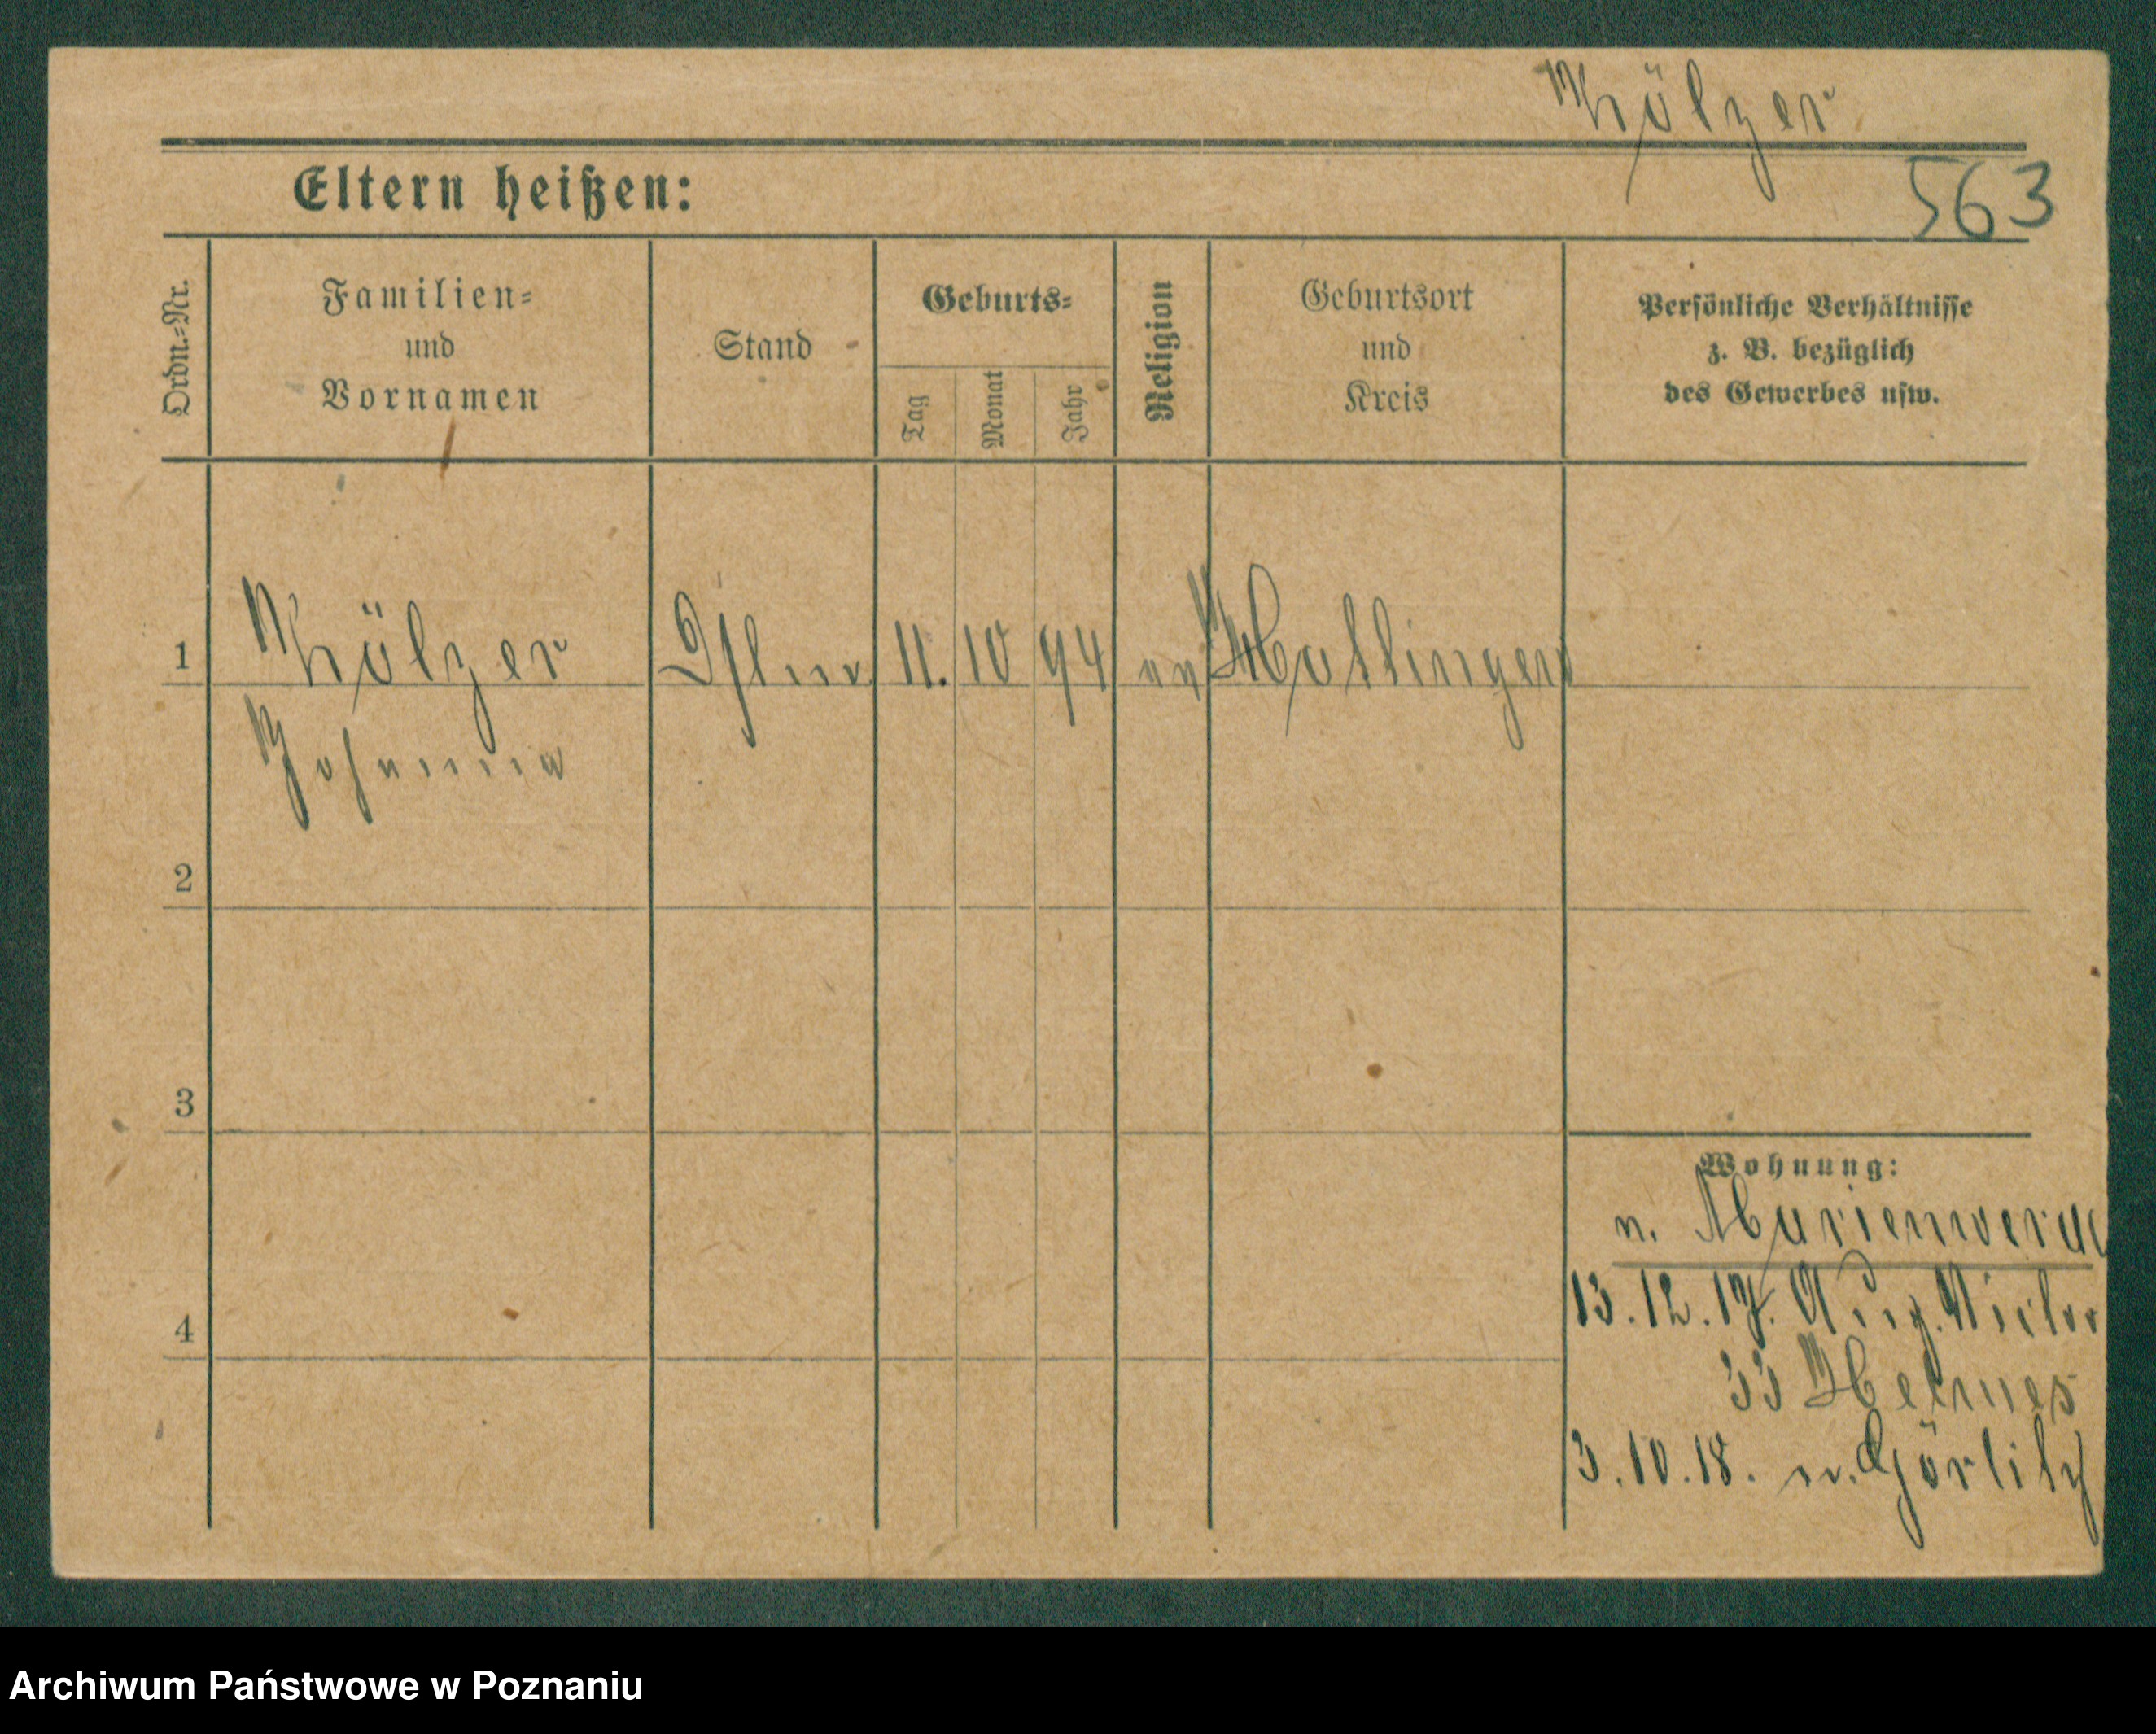 Nölzer
563
Eltern heißen:
Ordn.=Nr.
Familien=
und
Vornamen
Stand
Geburts=
Tag
Monat
Jahr
Religion
Geburtsort
und
Kreis
Persönliche Verhältnisse
z. B. bezüglich
des Gewerbes usw.
1 Nölzer 11. 10 94 ev
Johanna
2
3
4
Wohnung:
n. Marienwerd
13.12.17. Aug. Victor
33
3.10.18. n. Görlitz
Archiwum Państwowe w Poznaniu